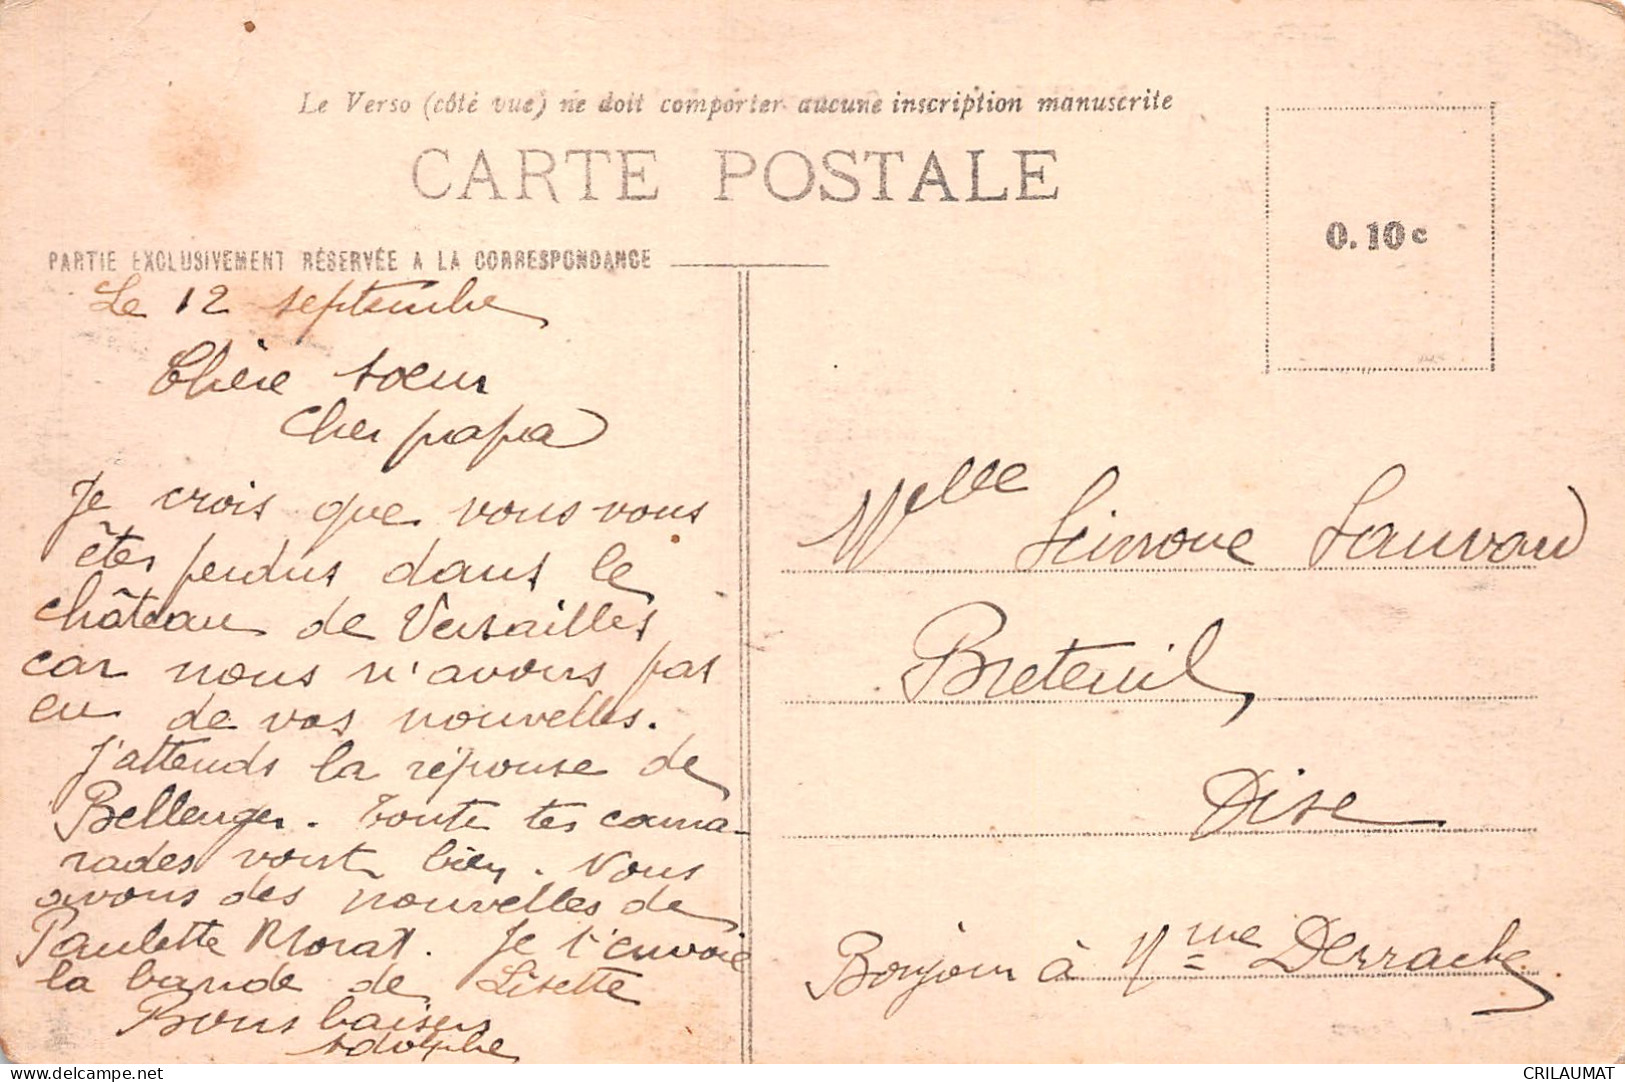 Le Verso (côté vue) ne doit comporter aucune inscription manuscrite
CARTE POSTALE
0.10c
PARTIE EXCLUSIVEMENT RÉSERVÉE A LA CORRESPONDANCE
Le 12 septembre
Chère soeur
Cher papa
Je crois que vous vous
êtes perdus dans le
château de Versailles
car nous n'avons pas
eu de vos nouvelles.
J'attends la réponse de
Bellenger. Toute tes cama-
rades vont bien. Nous
avons des nouvelles de
Paulette Morat. Je t'envoie
la bande de Lisette
Bons baisers
Adolphe
Melle Simone Sauvan
Breteuil
Oise
Bonjour à Mme Derrache
delcampe.net
CRILAUMAT